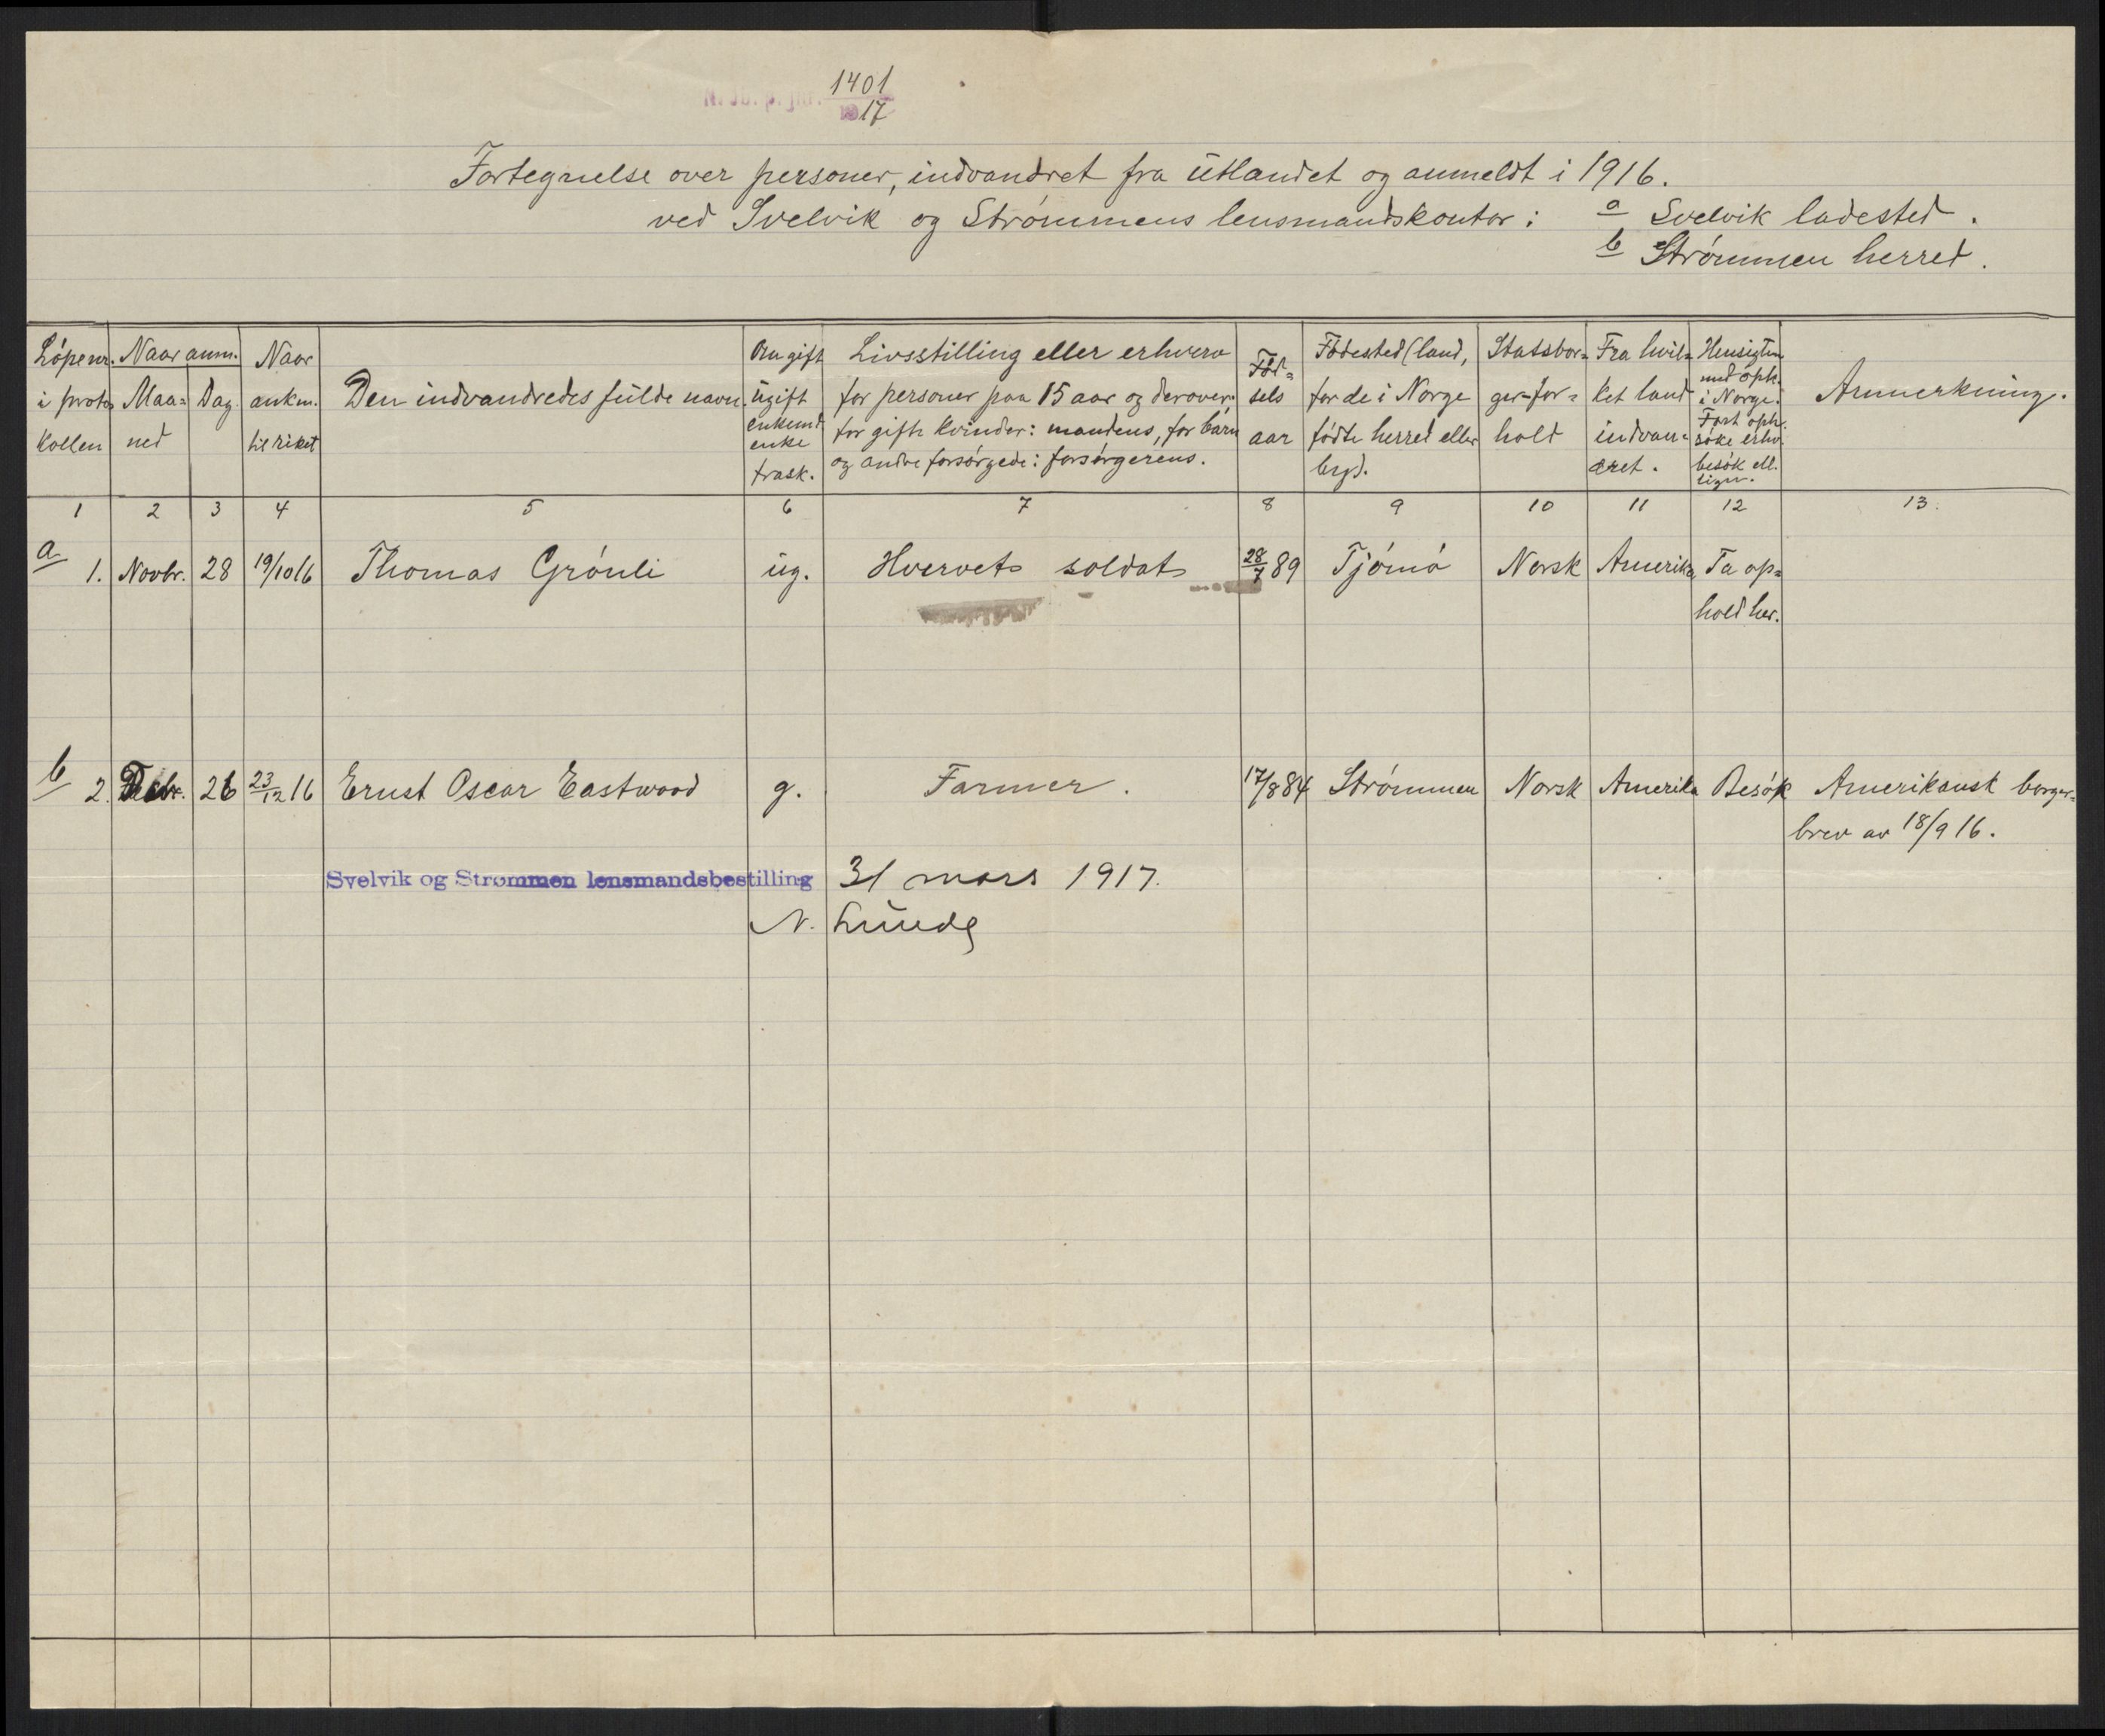 1401
17
Fortegnelse over personer, indvandret fra utlandet og anmeldt i 1916.
ved Svelvik og Strømmens lensmandskontor: a Svelvik ladested.
b Strømmen herred.
Löpenr. i protokollen
Naar anm.
Maaned
Dag.
Naar ankm. til riket
Den indvandredes fulde navn.
Om gift ugift enkemd enke frask.
Livsstilling eller erhverv for personer paa 15 aar og derover; for gifte kvinder: mandens, for barn og andre forsørgede: forsørgerens.
Födselsaar
Födested (land, for de i Norge födte herred eller by).
Statsborgerforhold
Fra hvilket land indvandret.
Hensigten med oph. i Norge. Fast oph. söke erhv. besök ell. lign.
Anmerkning.
1 2 3 4 5 6 7 8 9 10 11 12 13.
a
1. Novbr. 28 19/10 16 Thomas Grönli ug. Hvervet soldat 28/7 89 Tjömö Norsk Amerika Ta op=
hold her.
b
2. Decbr. 26 23/12 16 Ernst Oscar Eastwood g. Farmer. 17/8 84 Strömmen Norsk Amerika Besök Amerikansk borger=
brev av 18/9 16.
Svelvik og Strømmen lensmandsbestilling 31 mars 1917.
N. Lunde